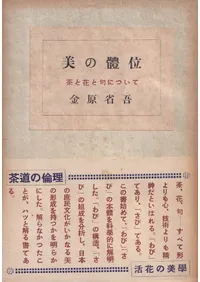 美の體位
茶と花と句について
金原省吾
茶道の倫理
茶、花、句――すべて形
よりも心、技術よりも精
神だといはれる。「わび」
であり、「さび」である。
この書始めて、「わび」「さ
び」の本體を科學的に解明
した。「わび」の構造、「さ
び」の組成を分析し、日本
の庶民文化がいかなる美
の形成を持つかを明らか
にした。解らなかつたこ
とが、ハツと解る書であ
る。
活花の美學